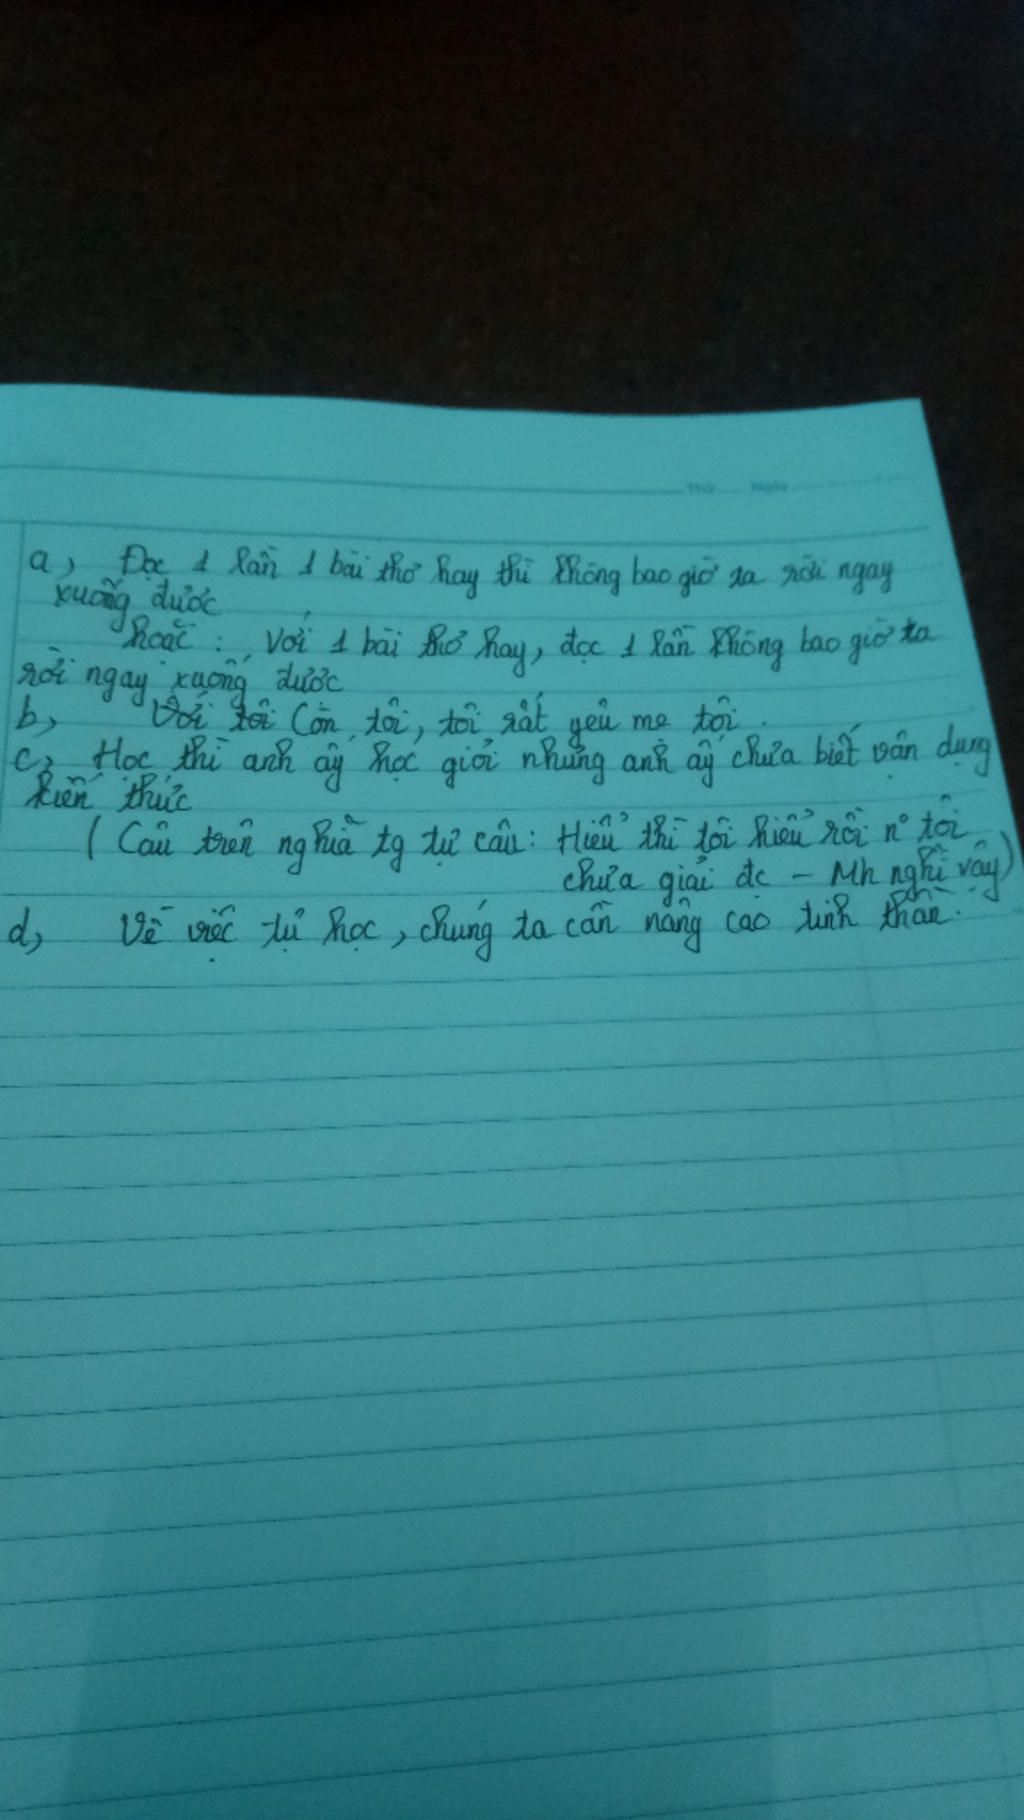 Thứ Ngày
a, Đọc 1 lần 1 bài thơ hay thì không bao giờ ta rời ngay
xuống được
hoặc : Với 1 bài thơ hay, đọc 1 lần không bao giờ ta
rời ngay xuống được
b, Với tôi Còn tôi, tôi rất yêu mẹ tôi.
c, Học thì anh ấy học giỏi nhưng anh ấy chưa biết vận dụng
kiến thức
( Câu trên nghĩa tg tự câu : Hiểu thì tôi hiểu rồi nº tôi
chưa giải đc - Mh nghĩ vậy)
d, Về việc tự học, chúng ta cần nâng cao tinh thần.